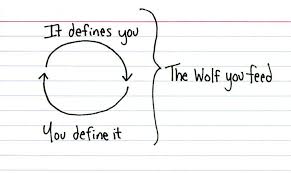 It defines you
The Wolf you feed
You define it